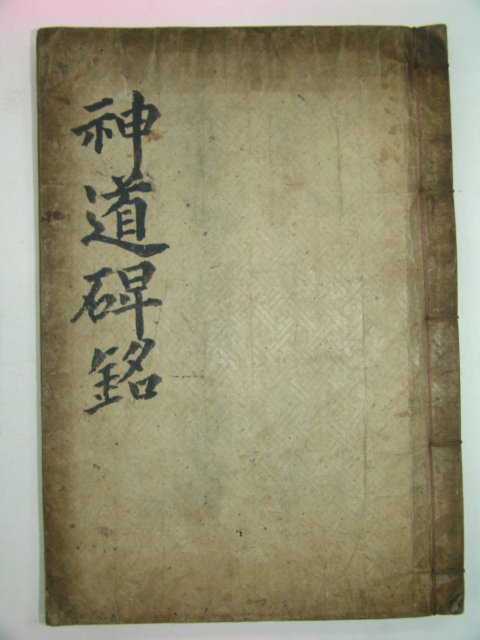 神道碑銘